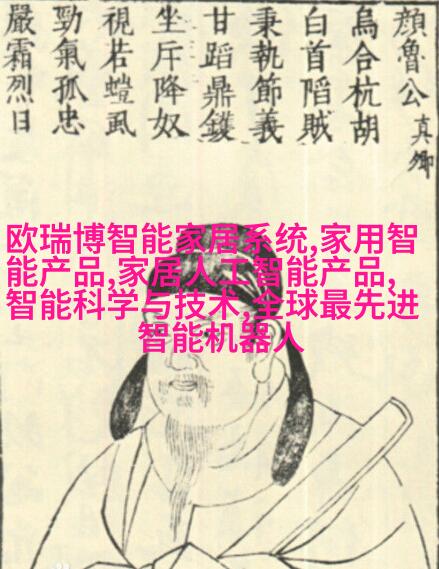 顏魯公真卿
烏合杭胡
白首陷賊
秉執節義
甘蹈鼎鑊
坐斥降奴
視若螘虱
勁氣孤忠
嚴霜烈日
欧瑞博智能家居系统,家用智
能产品,家居人工智能产品,
智能科学与技术,全球最先进
智能机器人